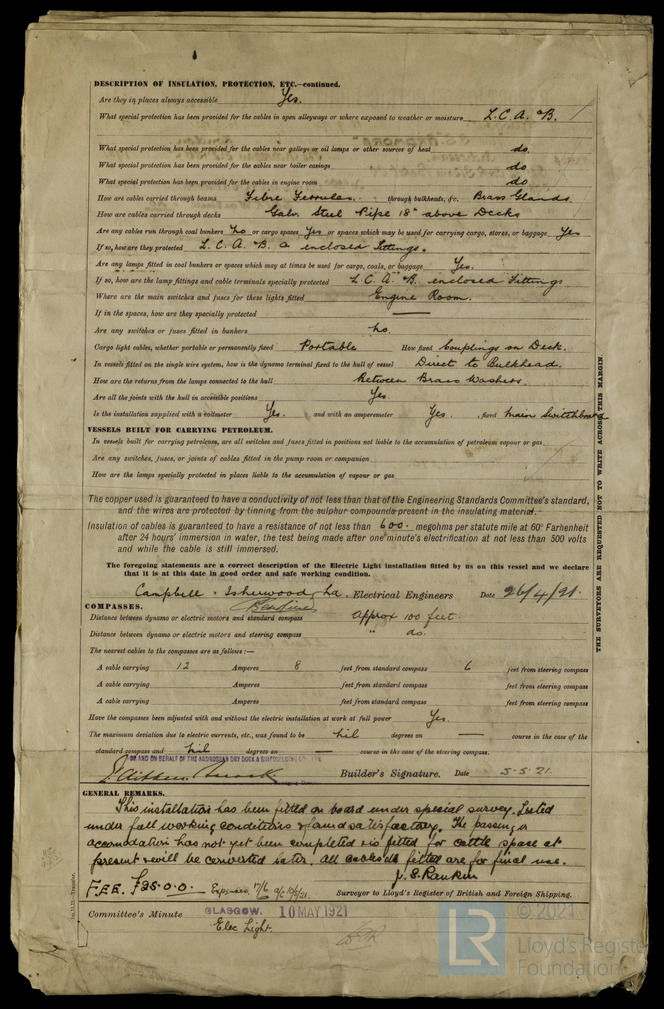 DESCRIPTION OF INSULATION, PROTECTION, ETC.—continued.
Are they in places always accessible Yes.
What special protection has been provided for the cables in open alleyways or where exposed to weather or moisture L.C.A. & B.
What special protection has been provided for the cables near galleys or oil lamps or other sources of heat do.
What special protection has been provided for the cables near boiler casings do
What special protection has been provided for the cables in engine room do
How are cables carried through beams Fibre Ferrules. through bulkheads, &c. Brass Glands.
How are cables carried through decks Galv. Steel Pipe 18" above Decks
Are any cables run through coal bunkers No or cargo spaces Yes or spaces which may be used for carrying cargo, stores, or baggage Yes
If so, how are they protected L.C.A. & B. & enclosed fittings.
Are any lamps fitted in coal bunkers or spaces which may at times be used for cargo, coals, or baggage Yes.
If so, how are the lamp fittings and cable terminals specially protected L.C.A. & B. enclosed Fittings
Where are the main switches and fuses for these lights fitted Engine Room.
If in the spaces, how are they specially protected —
Are any switches or fuses fitted in bunkers No.
Cargo light cables, whether portable or permanently fixed Portable How fixed Couplings on Deck.
In vessels fitted on the single wire system, how is the dynamo terminal fixed to the hull of vessel Direct to Bulkhead.
How are the returns from the lamps connected to the hull Between Brass Washers.
Are all the joints with the hull in accessible positions Yes.
Is the installation supplied with a voltmeter Yes. and with an amperemeter Yes. , fixed Main Switchboard
VESSELS BUILT FOR CARRYING PETROLEUM.
In vessels built for carrying petroleum, are all switches and fuses fitted in positions not liable to the accumulation of petroleum vapour or gas
Are any switches, fuses, or joints of cables fitted in the pump room or companion
How are the lamps specially protected in places liable to the accumulation of vapour or gas
The copper used is guaranteed to have a conductivity of not less than that of the Engineering Standards Committee's standard,
and the wires are protected by tinning from the sulphur compounds present in the insulating material.
Insulation of cables is guaranteed to have a resistance of not less than 600. megohms per statute mile at 60° Farhenheit
after 24 hours' immersion in water, the test being made after one minute's electrification at not less than 500 volts
and while the cable is still immersed.
The foregoing statements are a correct description of the Electric Light installation fitted by us on this vessel and we declare
that it is at this date in good order and safe working condition.
Campbell & Isherwood Ld. Electrical Engineers Date 26/4/21.
COMPASSES.
Distance between dynamo or electric motors and standard compass Approx 100 feet.
Distance between dynamo or electric motors and steering compass " do.
The nearest cables to the compasses are as follows:—
A cable carrying 12 Amperes 8 feet from standard compass 6 feet from steering compass
A cable carrying Amperes feet from standard compass feet from steering compass
A cable carrying Amperes feet from standard compass feet from steering compass
Have the compasses been adjusted with and without the electric installation at work at full power Yes.
The maximum deviation due to electric currents, etc., was found to be Nil degrees on — course in the case of the
standard compass and Nil degrees on — course in the case of the steering compass.
FOR AND ON BEHALF OF THE ARDROSSAN DRY DOCK & SHIPBUILDING CO., LTD
Builder's Signature. Date 5.5.21.
GENERAL REMARKS.
This installation has been fitted on board under special survey. Tested
under full working conditions & found satisfactory. The passenger
accomodation has not yet been completed & is fitted for cattle space at
present & will be converted later. All cables as fitted are for final use.
J. S. Rankin
FEE. £25-0-0. Expenses 17/6
Surveyor to Lloyd's Register of British and Foreign Shipping.
Committee's Minute GLASGOW. 10 MAY 1921
Elec Light.
THE SURVEYORS ARE REQUESTED NOT TO WRITE ACROSS THIS MARGIN
LR
© 2021
Lloyd's Register
Foundation